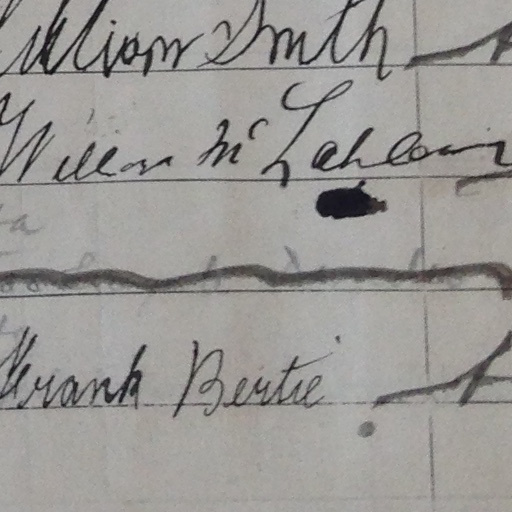 William Smith
William Mc Lahlan
Frank Bertie